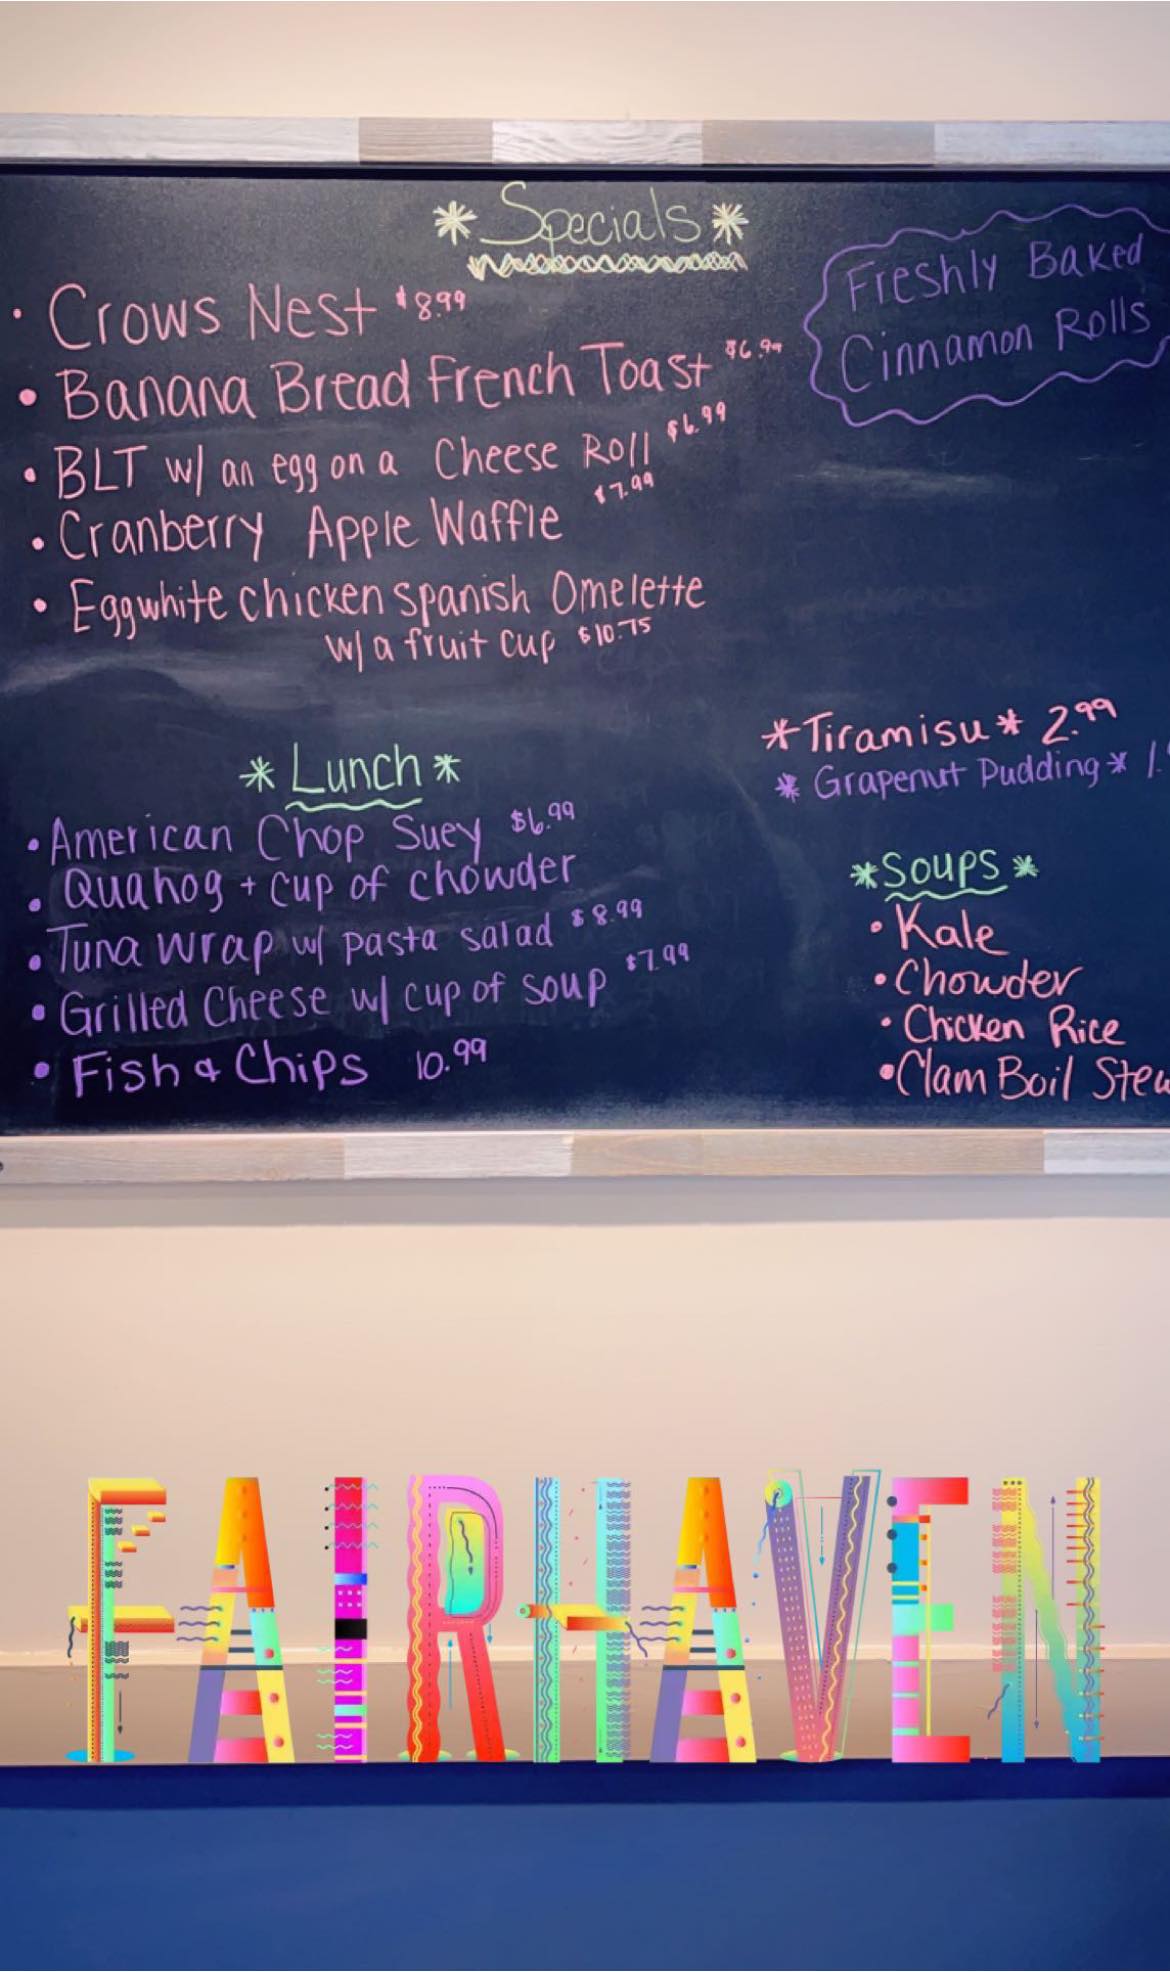 * Specials *
Freshly Baked
Cinnamon Rolls
• Crows Nest $8.99
• Banana Bread French Toast $6.99
• BLT w/ an egg on a Cheese Roll $6.99
• Cranberry Apple Waffle $7.99
• Eggwhite chicken spanish Omelette
w/ a fruit cup $10.75
* Lunch *
• American Chop Suey $6.99
• Quahog + cup of chowder
• Tuna wrap w/ pasta salad $8.99
• Grilled Cheese w/ cup of soup $7.99
• Fish & Chips 10.99
*Tiramisu* 2.99
* Grapenut Pudding*
*Soups*
• Kale
• Chowder
• Chicken Rice
• Clam Boil Stew
FAIRHAVEN